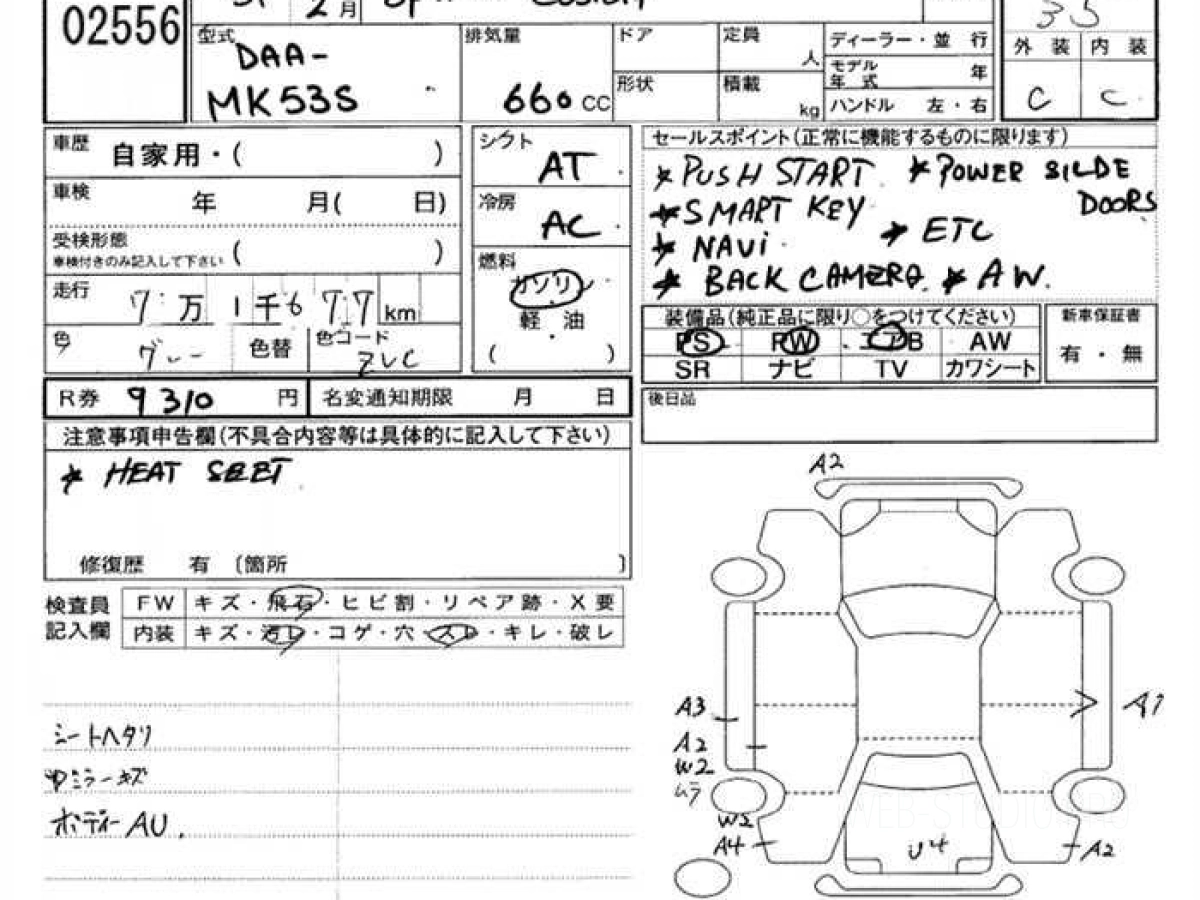 02556
2月
型式
DAA-
MK53S
排気量
660 CC
ドア
形状
定員
人
積載
kg
ディーラー・並 行
モデル
年 式
年
ハンドル 左・右
35
外 装 内 装
C C
車歴
自家用・( )
車検
年 月( 日)
受検形態
車検付きのみ記入して下さい ( )
走行
7万1千677km
色
グレー
色替
色コード
ZVC
シフト
AT
冷房
AC
燃料
ガソリン
軽 油
( )
セールスポイント(正常に機能するものに限ります)
* PUSH START * POWER SILDE
DOORS
* SMART KEY
* NAVi * ETC
* BACK CAMERA * AW.
装備品(純正品に限り○をつけてください)
PS PW エアB AW
SR ナビ TV カワシート
新車保証書
有・無
R券 9310 円
名変通知期限 月 日
後日品
注意事項申告欄(不具合内容等は具体的に記入して下さい)
* HEAT SEET
修復歴 有 〔箇所 〕
検査員
記入欄
FW キズ・飛石・ヒビ割・リペア跡・X要
内装 キズ・汚レ・コゲ・穴・スレ・キレ・破レ
シートヘタリ
ミラーキズ
ボディーAU.
A2
A3
A2
W2
ムラ
W2
A4
U4
A2
A1